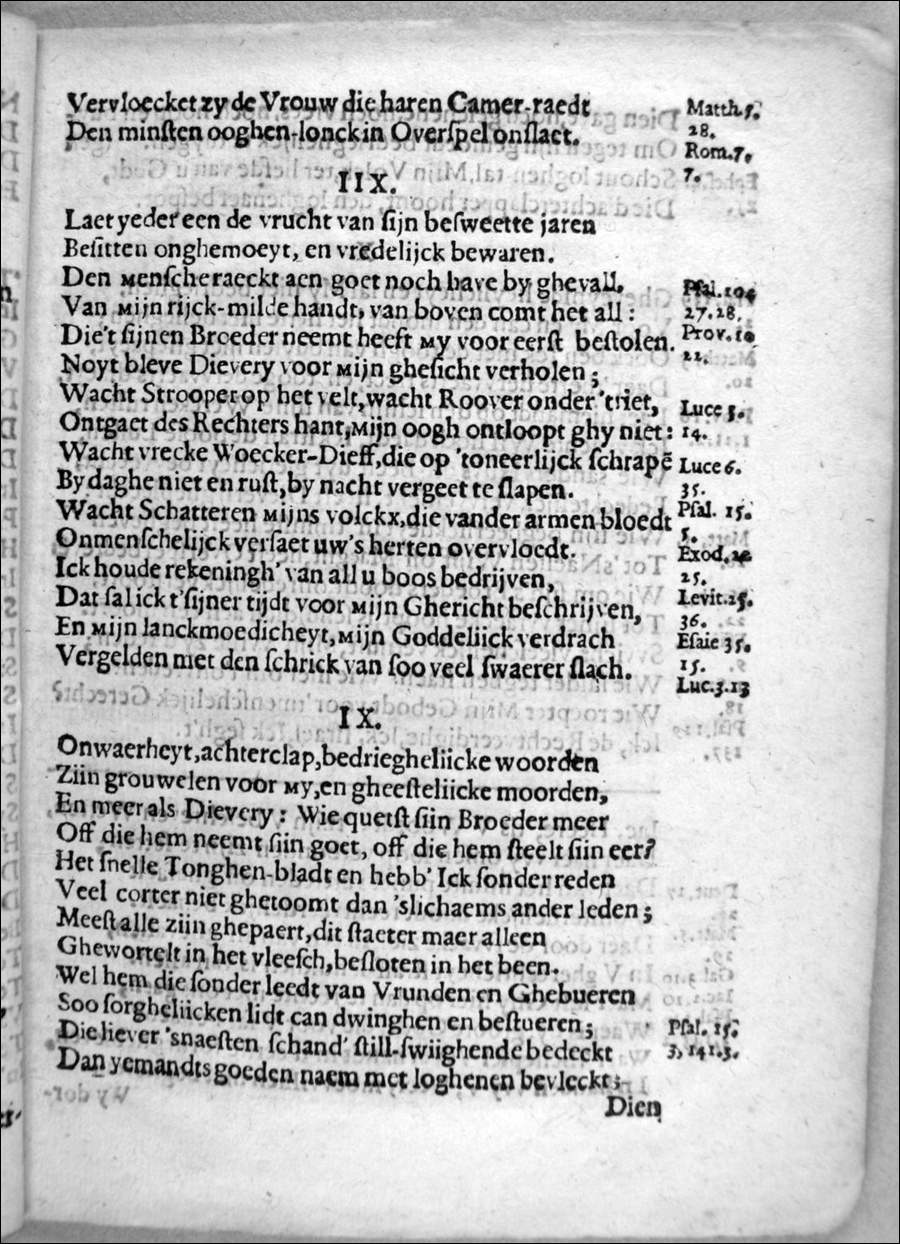 Vervloecket zy de Vrouw die haren Camer-raedt
Den minsten ooghen-lonck in Overspel onslaet.
Matth. 5.
28.
Rom. 7.
7.
IIX.
Laet yeder een de vrucht van sijn besweette jaren
Besitten onghemoeyt, en vredelijck bewaren.
Den Menscheraeckt aen goet noch have by ghevall,
Van Mijn rijck-milde handt, van boven comt het all:
Die't sijnen Broeder neemt heeft My voor eerst bestolen.
Noyt bleve Dievery voor Mijn ghesicht verholen;
Wacht Strooper op het velt, wacht Roover onder 'triet,
Ontgaet des Rechters hant, Mijn oogh ontloopt ghy niet:
Wacht vrecke Woecker-Dieff, die op 'toneerlijck schrapē
By daghe niet en rust, by nacht vergeet te slapen.
Wacht Schatteren Mijns volckx, die vander armen bloedt
Onmenschelijck versaet uw's herten overvloedt.
Ick houde rekeningh' van all u boos bedrijven,
Dat sal ick t'sijner tijdt voor Mijn Ghericht beschrijven,
En Mijn lanckmoedicheyt, Mijn Goddeliick verdrach
Vergelden met den schrick van soo veel swaerer slach.
Psal. 104
27. 28.
Prov. 10
22.
Luce 3.
14.
Luce 6.
35.
Psal. 15.
5.
Exod. 22
25.
Levit. 25.
36.
Esaie 35.
15.
Luc. 3. 13
IX.
Onwaerheyt, achterclap, bedriegheliicke woorden
Ziin grouwelen voor My, en gheesteliicke moorden,
En meer als Dievery: Wie quetst siin Broeder meer
Off die hem neemt siin goet, off die hem steelt siin eer?
Het snelle Tonghen-bladt en hebb' Ick sonder reden
Veel corter niet ghetoomt dan 'slichaems ander leden;
Meest alle zijn ghepaert, dit staeter maer alleen
Ghewortelt in het vleesch, besloten in het been.
Wel hem die sonder leedt van Vrunden en Ghebueren
Soo sorgheliicken lidt can dwinghen en bestueren;
Die liever 'snaesten schand' still-swiighende bedeckt
Dan yemandts goeden naem met loghenen bevleckt;
Psal. 15.
3, 141. 3.
Dien